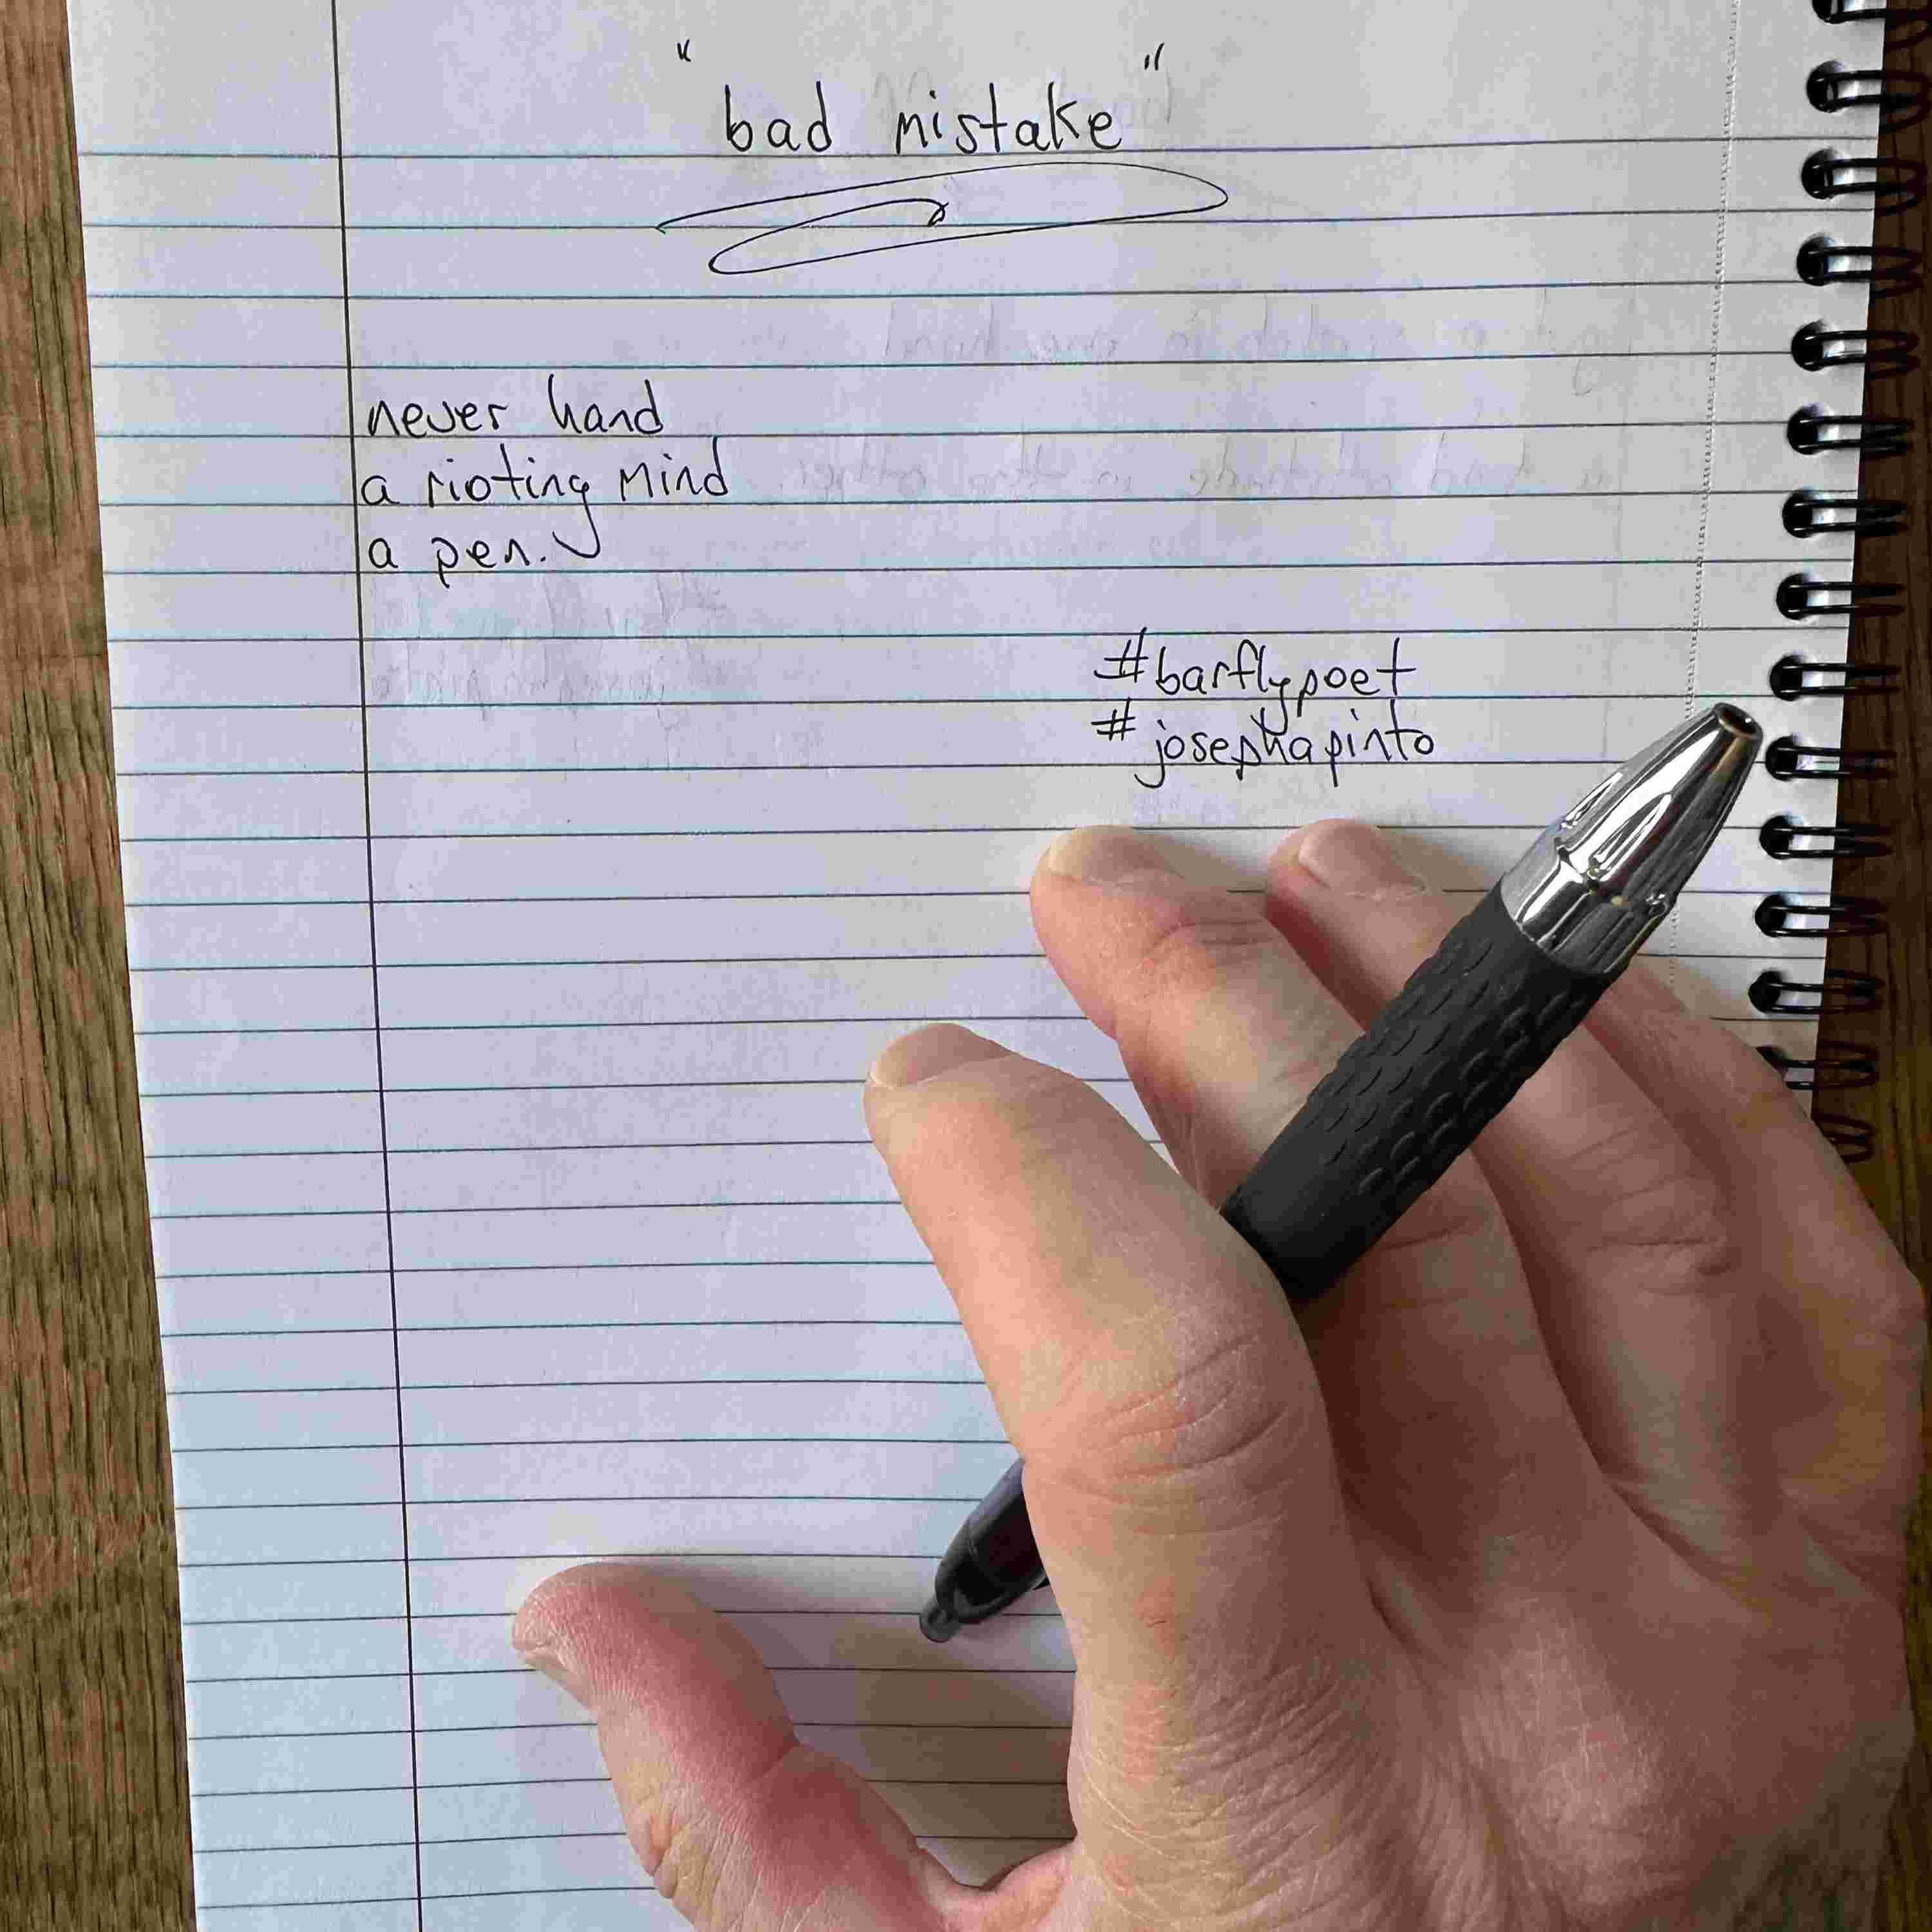 "bad mistake"
never hand
a rioting mind
a pen.
#barflypoet
#josephapinto